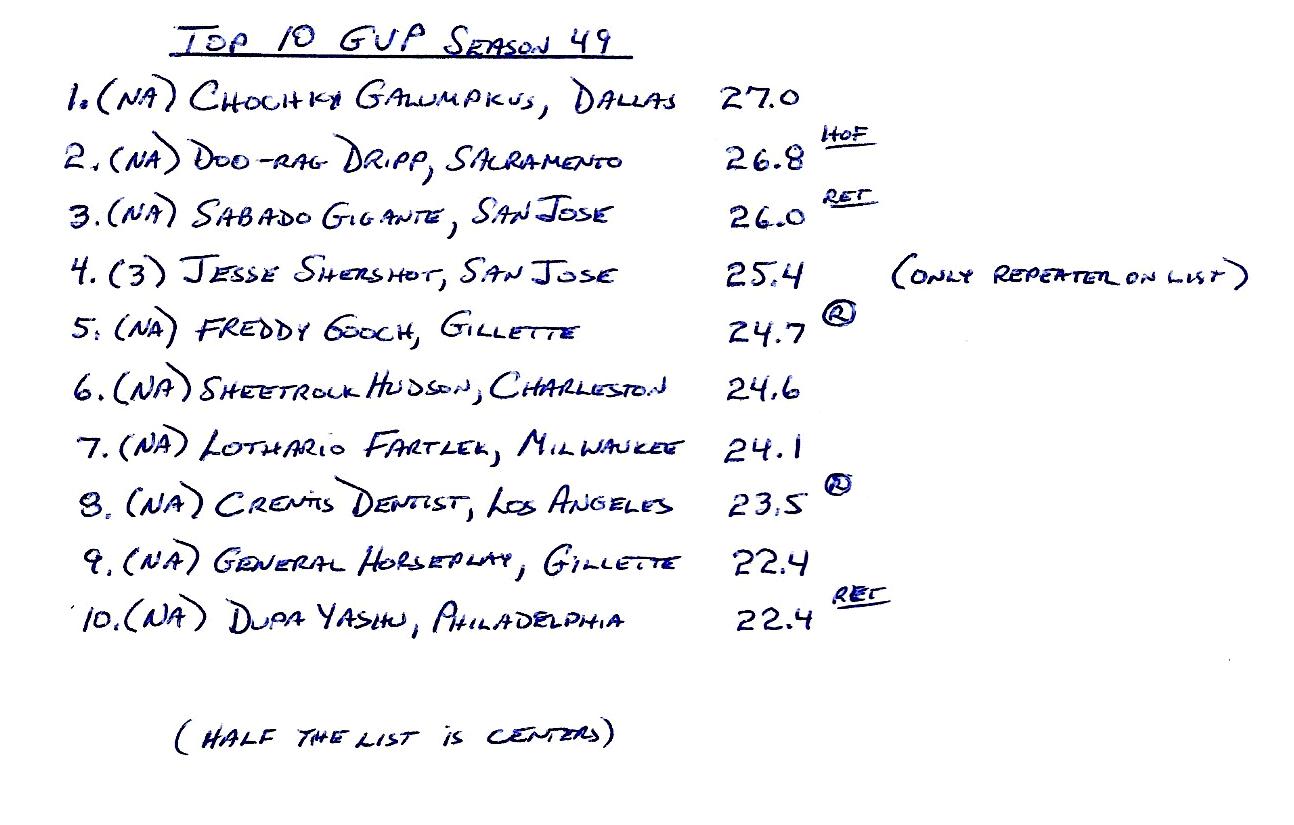 TOP 10 GVP SEASON 49
1. (NA) CHOCHKY GALUMPKUS, DALLAS 27.0
2. (NA) DOO-RAG DRIPP, SACRAMENTO 26.8 HOF
3. (NA) SABADO GIGANTE, SAN JOSE 26.0 RET
4. (3) JESSE SHERSHOT, SAN JOSE 25.4 (ONLY REPEATER ON LIST)
5. (NA) FREDDY GOOCH, GILLETTE 24.7 Ⓡ
6. (NA) SHEETROCK HUDSON, CHARLESTON 24.6
7. (NA) LOTHARIO FARTLEK, MILWAUKEE 24.1
8. (NA) CRENTIS DENTIST, LOS ANGELES 23.5 Ⓡ
9. (NA) GENERAL HORSEPLAY, GILLETTE 22.4
10. (NA) DUPA YASHU, PHILADELPHIA 22.4 RET
(HALF THE LIST IS CENTERS)